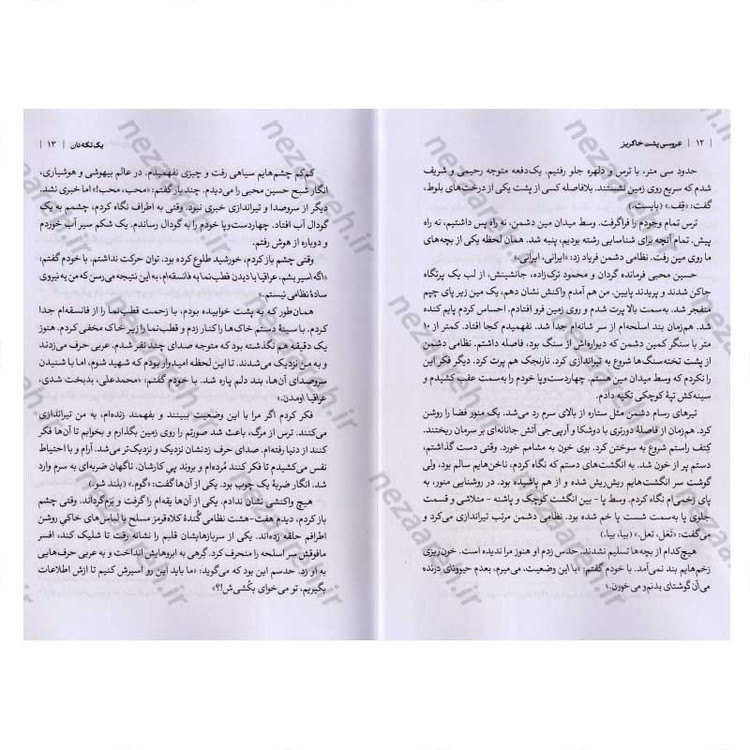 ۱۲ | عروسی پشت خاکریز
حدود سی متر، با ترس و دلهره جلو رفتیم. یک‌دفعه متوجه رحیمی و شریف
شدم که سریع روی زمین نشستند. بلافاصله کسی از پشت یکی از درخت‌های بلوط،
گفت: «قِف.» (بایست.)
ترس تمام وجودم را فراگرفت. وسط میدان مین دشمن، نه راه پس داشتیم، نه راه
پیش. تمام آنچه برای شناسایی رشته بودیم، پنبه شد. همان لحظه یکی از بچه‌های
ما روی مین رفت. نظامی دشمن فریاد زد: «ایرانی، ایرانی.»
حسین محبی فرمانده گردان و محمود ترک‌زاده، جانشینش، از لب یک پرتگاه
جاکن شدند و پریدند پایین. من هم آمدم واکنش نشان دهم، یک مین زیر پای چپم
منفجر شد. به‌سمت بالا پرت شدم و روی زمین فرو افتادم. احساس کردم پایم کنده
شد. هم‌زمان بند اسلحه‌ام از سر شانه‌ام جدا شد. نفهمیدم کجا افتاد. کمتر از ۱۰
متر با سنگر کمین دشمن که دیواره‌اش از سنگ بود، فاصله داشتم. نظامی دشمن
از پشت تخته‌سنگ‌ها شروع به تیراندازی کرد. نارنجک هم پرت کرد. دیگر فکر این
را نکردم که وسط میدان مین هستم. چهاردست‌وپا خودم را به‌سمت عقب کشیدم و
سینه‌کش تپهٔ کوچکی تکیه دادم.
تیرهای رسام دشمن مثل ستاره از بالای سرم رد می‌شد. یک منور فضا را روشن
کرد. هم‌زمان از فاصلهٔ دورتری با دوشکا و آرپی‌جی آتش جانانه‌ای بر سرمان ریختند.
کِتف راستم شروع به سوختن کرد. بوی خون به مشامم خورد. وقتی دست گذاشتم،
دستم پر از خون شد. به انگشت‌های دستم که نگاه کردم، ناخن‌هایم سالم بود، ولی
گوشت سر انگشت‌هایم ریش‌ریش شده و از هم پاشیده بود. در روشنایی منور، به
پای زخمی‌ام نگاه کردم. وسط پا - بین انگشت کوچک و پاشنه - متلاشی و قسمت
جلوی پا به‌سمت شست پا خم شده بود. نظامی دشمن مرتب تیراندازی می‌کرد و
می‌گفت: «تَعَل، تعل.» (بیا، بیا.)
هیچ‌کدام از بچه‌ها تسلیم نشدند. حدس زدم او هنوز مرا ندیده است. خون‌ریزی
زخم‌هایم بند نمی‌آمد. با خودم گفتم: «با این وضعیت، می‌میرم، بعدم حیوونای درنده
می‌آن گوشتای بدنم‌و می‌خورن.»
یک تکه نان | ۱۳
کم‌کم چشم‌هایم سیاهی رفت و چیزی نفهمیدم. در عالم بیهوشی و هوشیاری،
انگار شبح حسین محبی را می‌دیدم. چند بار گفتم: «محب، محب!» اما خبری نشد.
دیگر از سروصدا و تیراندازی خبری نبود. وقتی به اطراف نگاه کردم، چشمم به یک
گودال آب افتاد. چهاردست‌وپا خودم را به گودال رساندم. یک شکم سیر آب خوردم
و دوباره از هوش رفتم.
وقتی چشم باز کردم، خورشید طلوع کرده بود. توان حرکت نداشتم. با خودم گفتم:
«اگه اسیر بشم، عراقیا با دیدن قطب‌نما به فانسقه‌ام، به این نتیجه می‌رسن که من یه نیروی
سادهٔ نظامی نیستم.»
همان‌طور که به پشت خوابیده بودم، با زحمت قطب‌نما را از فانسقه‌ام جدا
کردم. با سینهٔ دستم خاک‌ها را کنار زدم و قطب‌نما را زیر خاک مخفی کردم. هنوز
یک دقیقه هم نگذشته بود که متوجه صدای چند نفر شدم. عربی حرف می‌زدند
و به من نزدیک می‌شدند. تا این لحظه امیدوار بودم که شهید شوم، اما با شنیدن
سروصدای آن‌ها، بند دلم پاره شد. با خودم گفتم: «محمدعلی، بدبخت شدی،
عراقیا اومدن.»
فکر کردم اگر مرا با این وضعیت ببینند و بفهمند زنده‌ام، به من تیراندازی
می‌کنند. ترس از مرگ، باعث شد صورتم را روی زمین بگذارم و بخوابم تا آن‌ها فکر
کنند از دنیا رفته‌ام. صدای حرف زدنشان نزدیک و نزدیک‌تر می‌شد. آرام و با احتیاط
نفس می‌کشیدم تا فکر کنند مُرده‌ام و بروند پی کارشان. ناگهان ضربه‌ای به سرم وارد
شد. انگار ضربهٔ یک چوب بود. یکی از آن‌ها گفت: «گوم.» (بلند شو.)
هیچ واکنشی نشان ندادم. یکی از آن‌ها یقه‌ام را گرفت و بَرم‌گرداند. وقتی چشم
باز کردم، دیدم هفت-هشت نظامی گُندهٔ کلاه‌قرمز مسلح با لباس‌های خاکی روشن
اطرافم حلقه زده‌اند. یکی از سربازهایشان قلبم را نشانه رفت تا شلیک کند، افسر
مافوقش سر اسلحه را منحرف کرد. گِرهی به ابروهایش انداخت و به عربی حرف‌هایی
به او زد. حدسم این بود که می‌گوید: «ما باید این رو اسیرش کنیم تا ازش اطلاعات
بگیریم، تو می‌خوای بکُشی‌ش!؟»
nezaareh.ir